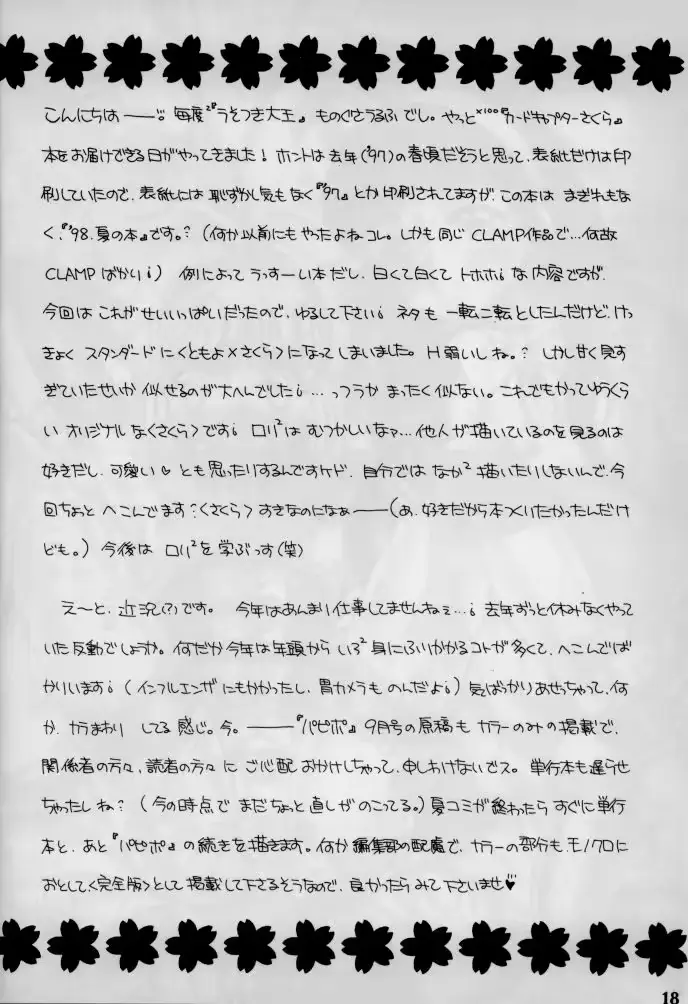 こんにちはー―。毎度²『うそつき大王』ものぐさうるふでし。やっと×100『カードキャプターさくら』
本をお届けできる日がやってきました！ホントは去年('97)の春頃だそうと思って、表紙だけは印
刷していたので、表紙には恥ずかし気もなく『'97』とか印刷されてますが、この本は まぎれもな
く、『'98.夏の本』です。？（何か以前にもやったよねコレ。しかも同じ CLAMP作品で…何故
CLAMPばかり¡）例によって うっすーい本だし、白くて白くて トホホ¡な内容ですが、
今回は これがせいいっぱいだったので、ゆるして下さい¡ ネタも 一転二転としたんだけど、けっ
きょく スタンダードに〈ともよ×さくら〉になってしまいました。H弱いしね。？ しかし甘く見す
ぎていたせいか 似せるのが大へんでした¡…っつうか まったく似ない。これでもかってゆうくら
い オリジナルな〈さくら〉です¡ ロリ²は むつかしいなァ…他人が描いているのを見るのは
好きだし、可愛い♡とも思ったりするんですケド、自分では なか²描いたりしないんで、今
回ちょっと へこんでます？〈さくら〉すきなのになぁ――（あ、好きだから本つくりたかったんだけ
ども。）今後は ロリ²を学ぶっす(笑)

え〜と、近況(?)です。 今年はあんまり仕事してませんねぇ…¡ 去年ずっと休みなくやって
いた反動でしょうか。何だか今年は年頭から いろ²身にふりかかるコトが多くて、へこんでば
かりいます¡（インフルエンザにもかかったし、胃カメラものんだよ¡）気ばっかりあせっちゃって、何
か、カラまわり してる感じ。今。――『パピポ』9月号の原稿も カラーのみの掲載で、
関係者の方々、読者の方々に ご心配おかけしちゃって、申しわけないでス。単行本も遅らせ
ちゃったしね？（今の時点で まだちょっと直しがのこってる。）夏コミが終わったら すぐに単行
本と、あと『パピポ』の続きを描きます。何か編集部の配慮で、カラーの部分も、モノクロに
おとして、〈完全版〉として 掲載して下さるそうなので、良かったらみて下さいませ♥
18